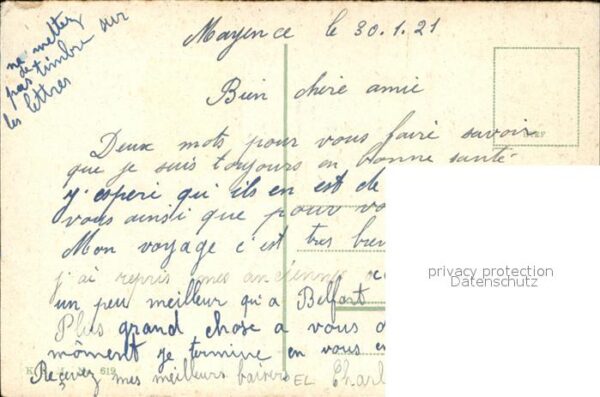 ne mettez
de
pas timbre sur
les lettres
Mayence le 30.1.21
Bien chère amie
Deux mots pour vous faire savoir
que je suis toujours en bonne santé
y'esperi qu'ils en est de
vous ainsi que pour vo
Mon voyage c'est tres bien
j'ai repris mes anciennes
un peu meilleur qu'a Belfort
Plus grand chose a vous d
môment je termine en vous e
Recevez mes meilleurs baisers
Charl
619
privacy protection
Datenschutz